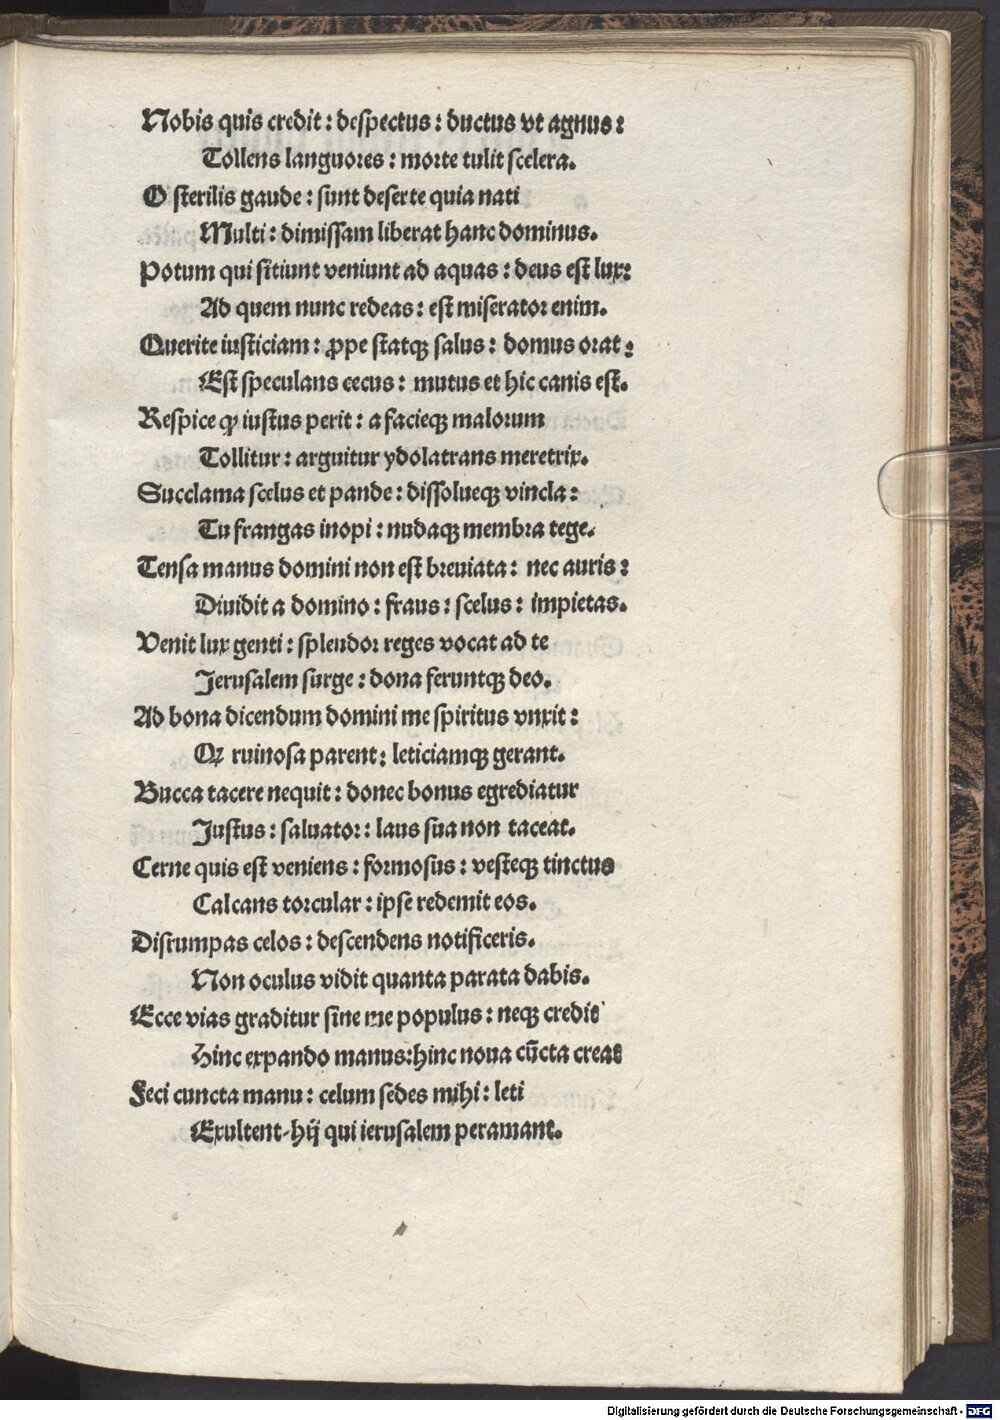 Nobis quis credit: despectus: ductus vt agnus:
Tollens languores: morte tulit scelera.
O sterilis gaude: sunt deserte quia nati
Multi: dimissam liberat hanc dominus.
Potum qui sitiunt veniunt ad aquas: deus est lux:
Ad quem nunc redeas: est miserator enim.
Querite iusticiam: ꝓpe statqꝫ salus: domus orat:
Est speculans cecus: mutus et hic canis est.
Respice ꝙ iustus perit: a facieqꝫ malorum
Tollitur: arguitur ydolatrans meretrix.
Succlama scelus et pande: dissolueqꝫ vincla:
Tu frangas inopi: nudaqꝫ membra tege.
Tensa manus domini non est breuiata: nec auris:
Diuidit a domino: fraus: scelus: impietas.
Venit lux genti: splendor reges vocat ad te
Jerusalem surge: dona feruntqꝫ deo.
Ad bona dicendum domini me spiritus vnxit:
Qꝛ ruinosa parent: leticiamqꝫ gerant.
Bucca tacere nequit: donec bonus egrediatur
Justus: saluator: laus sua non taceat.
Cerne quis est veniens: formosus: vesteqꝫ tinctus
Calcans torcular: ipse redemit eos.
Disrumpas celos: descendens notificeris.
Non oculus vidit quanta parata dabis.
Ecce vias graditur sine me populus: neqꝫ credit
Hinc expando manus: hinc noua cūcta creat
Feci cuncta manu: celum sedes mihi: leti
Exultent hij qui ierusalem peramant.
Digitalisierung gefördert durch die Deutsche Forschungsgemeinschaft - DFG